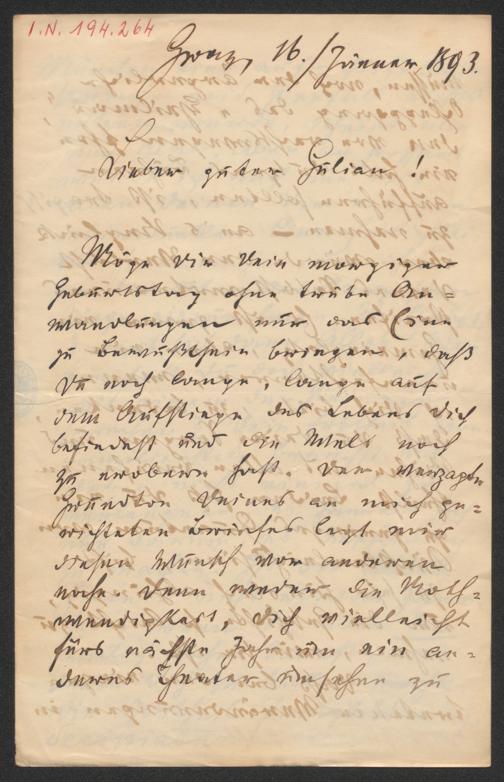 I.N. 194.264
Graz, 16./Jänner 1893.
Lieber guter Julian!
Möge dir dein morgiger
Geburtstag ohne trübe An=
wandlungen nur das Eine
zu Bewußtsein bringen, daß
Du noch lange, lange auf
dem Aufstiege des Lebens dich
befindest und die Welt noch
zu erobern hast. Der verzagte
Grundton Deines an mich ge=
richteten Briefes legt mir
diesen Wunsch vor anderen
nahe. Denn weder die Noth=
wendigkeit, Dich vielleicht
fürs nächste Jahr um ein an=
deres Theater umsehen zu